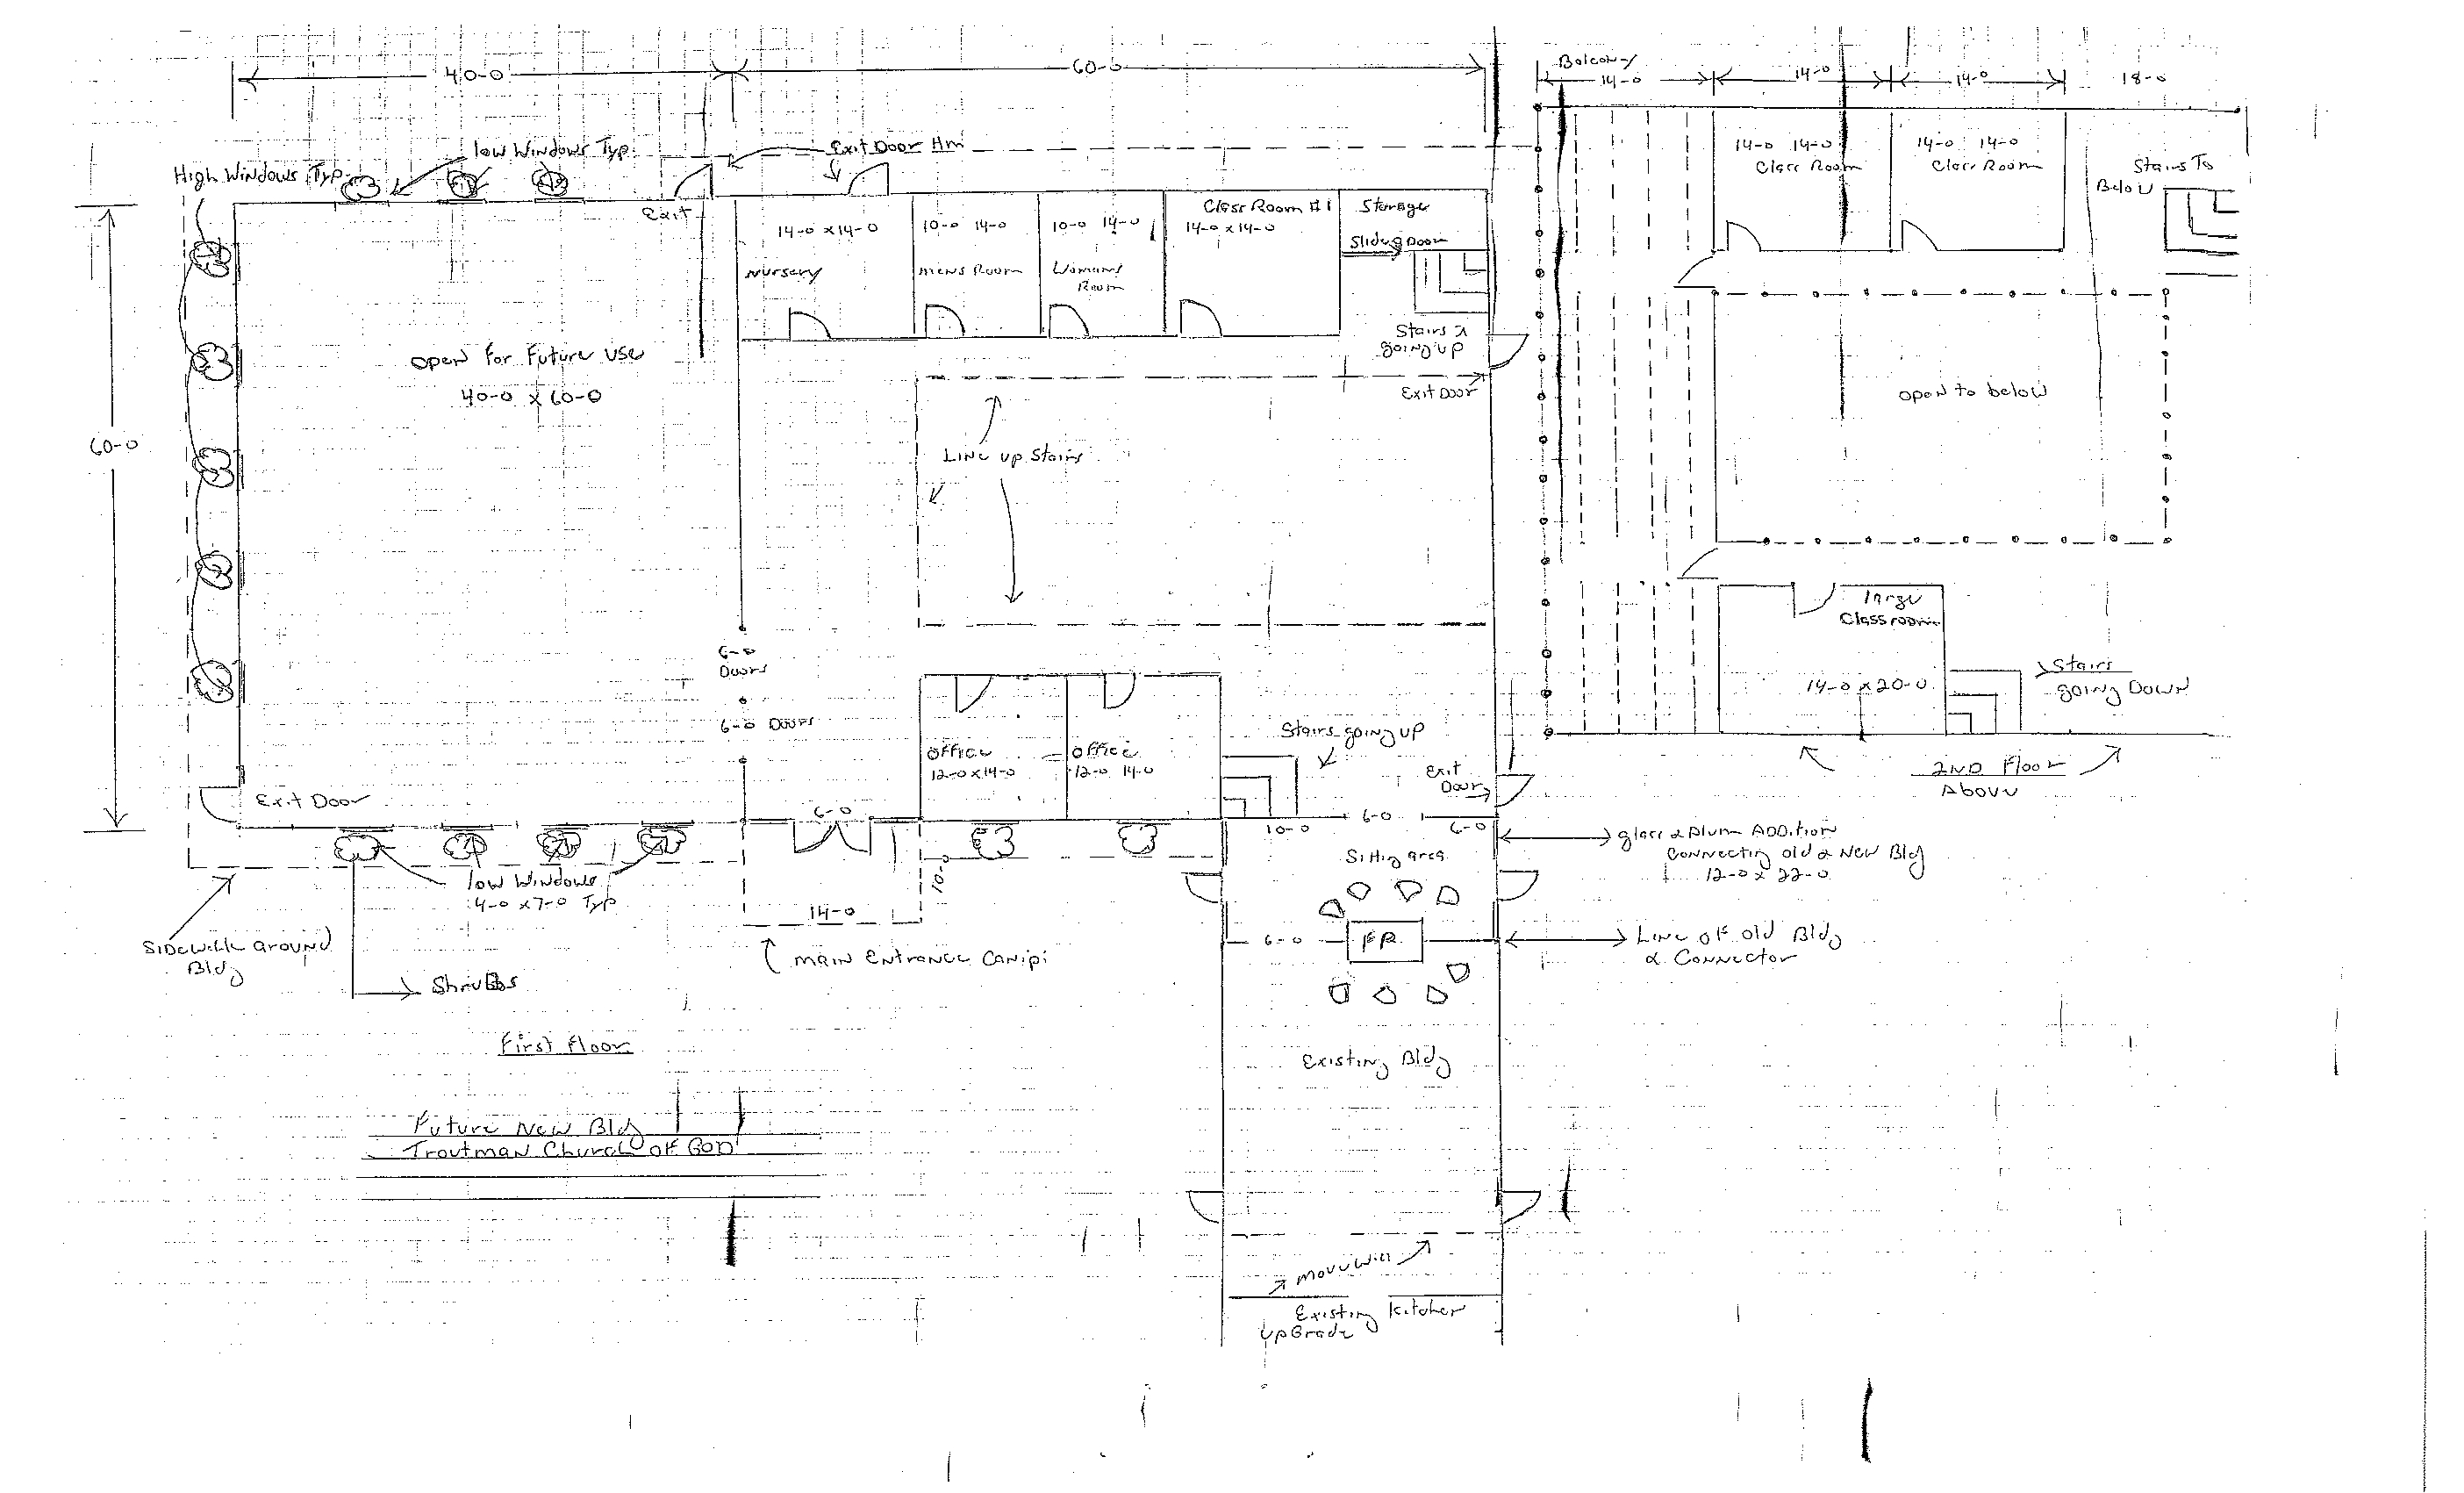 40-0
60-0
Balcony
14-0
14-0
14-0
18-0
low Windows Typ.
Exit Door Hm
High Windows Typ.
Exit
14-0 x 14-0
Nursery
10-0 14-0
mens Room
10-0 14-0
Womans
Room
Class Room #1
14-0 x 14-0
Storage
Sliding Door
Stairs
going up
Exit Door
14-0 14-0
Class Room
14-0 14-0
Class Room
Stairs To
Below
open for Future use
40-0 x 60-0
60-0
Line up Stairs
open to below
6-0
Doors
6-0 Doors
large
Classroom
14-0 x 20-0
Stairs
going Down
2ND Floor
Above
office
12-0 x 14-0
office
12-0 14-0
Stairs going up
Exit
Door
Exit Door
6-0
10-0
6-0
6-0
Sitting area
glass & Alum Addition
Connecting old & New Bldg
12-0 x 22-0
low Windows
4-0 x 7-0 Typ
10-0
14-0
Main Entrance Canipi
Sidewalk Ground
Bldg
Shrubbs
6-0
F.P.
Line of old Bldg
& Connector
First Floor
Existing Bldg
Future New Bldg
Troutman Church of God
move wall
Existing Kitchen
upGrade